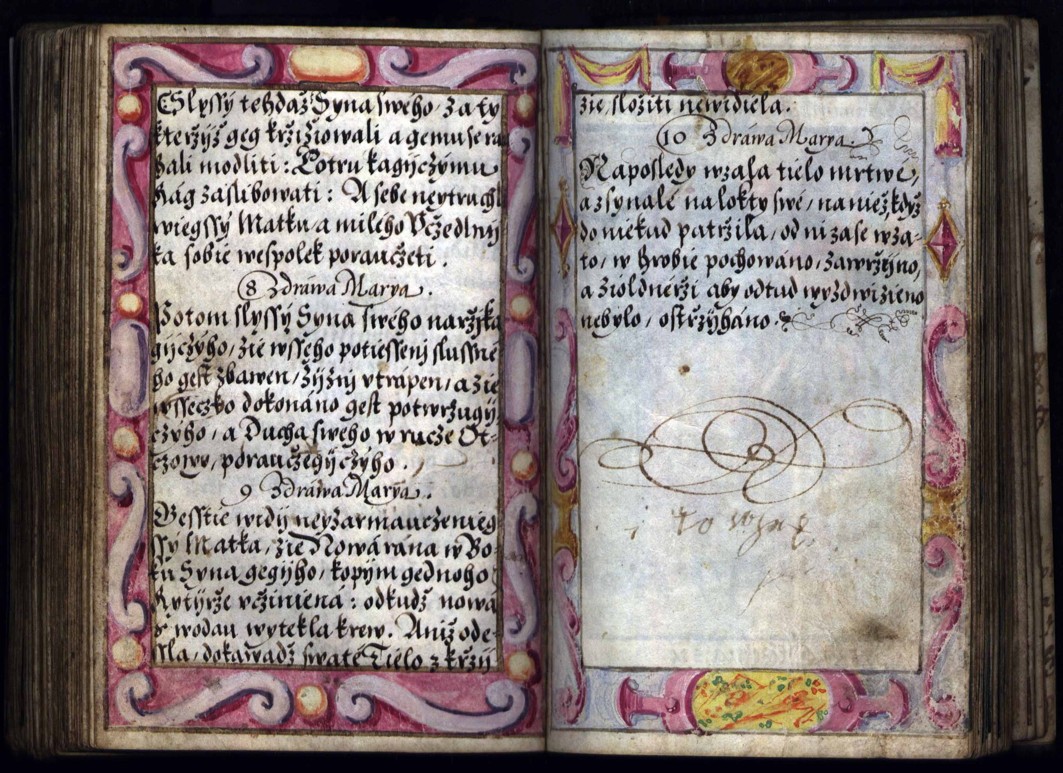 Slyssý tehdaž Syna sweho, za ty
kteržyž geg kržižiowali a gemu se
hali modliti: Lotru kagijcžymu
Rág zaslibowati: A sebe neytruchl
wiegssý Matku, a mileho Vcžedlnij
ka sobie wespolek poraucžeti.
8 Zdráwa Marya.
Potom slyssý Syna sweho naržjka
gijcžyho, žie wsseho potiessenj slussné
ho gest zbawen, Žijžnj vtrápen, a žie
wsseczko dokonáno gest potwrzugij
cžyho, a Ducha sweho w rucze Ot-
czowy, poraucžegijcžýho.
9 Zdráwa Marya.
Gesstie widij neyzarmaucženieg
ssý Matka, žie Nowá rána w Bo-
ku Syna gegijho, kopijm gednoho
Rytijrže vcžiniena: odkudž nowá
s wodau wytekla krew. Aniž ode-
ssla, dokawadž swaté Tielo z kržij
žie složiti newidiela.
10 Zdráwa Marya.
Naposledy wzala tielo mrtwé,
a zsynalé na lokty swé, na niež když
do niekud patržila, od ni zase wza-
to, w hrobie pochowáno, zawržijno,
a žioldnerži aby odtud wyzdwiżieno
nebylo, ostržýháno.
i to